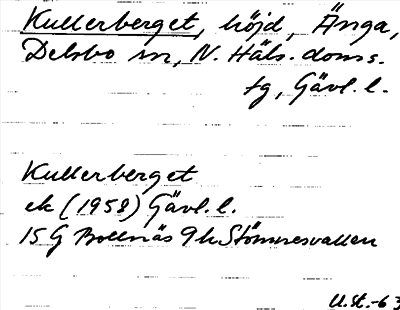 Kullerberget, höjd, Änga,
Delsbo sn, N. Häls. doms.
tg, Gävl. l.
Kullerberget
ek (1958) Gävl. l.
15 G Bollnäs 9 h Stömnesvallen
U.St.-63